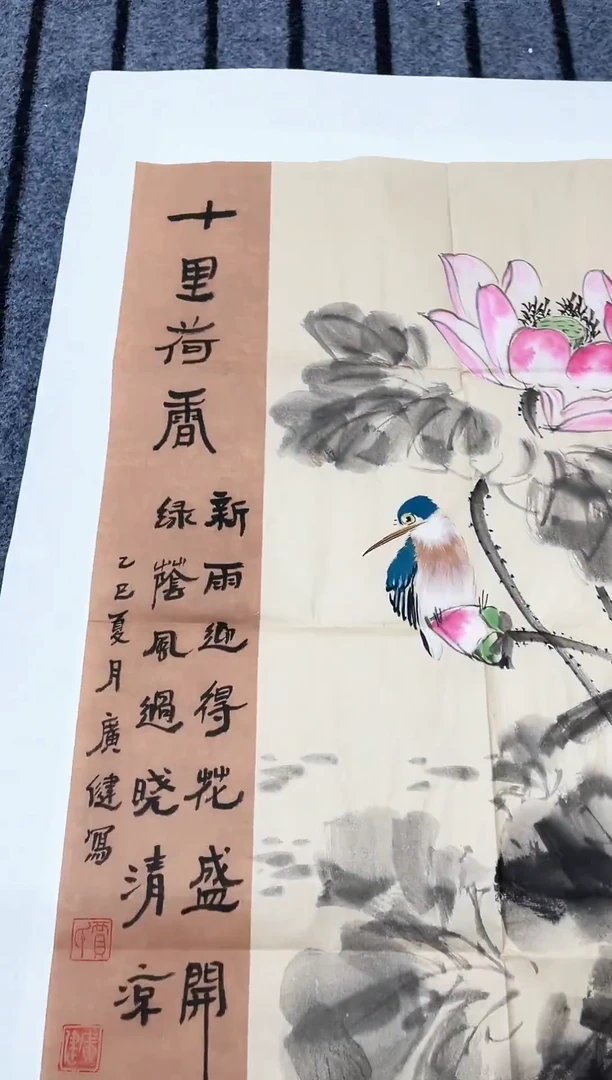 十里荷香
新雨迎得花盛開
绿蔭風過晓清涼
乙巳夏月廣健寫